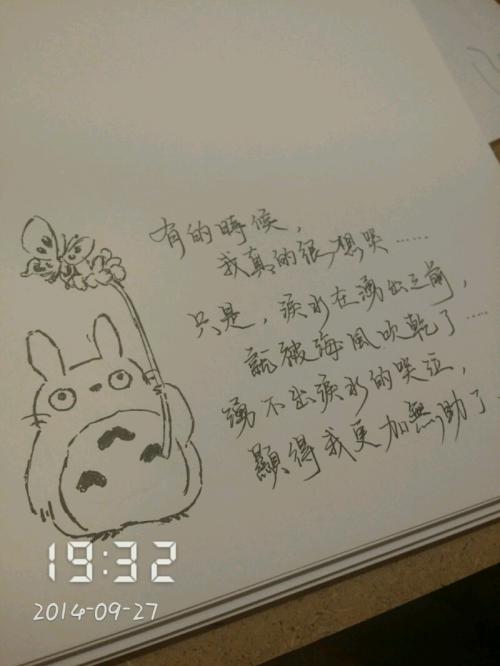 有的時候，
我真的很想哭……
只是，淚水在湧出之前，
就被海風吹乾了……
湧不出淚水的哭泣，
顯得我更加無助了
19:32
2014-09-27